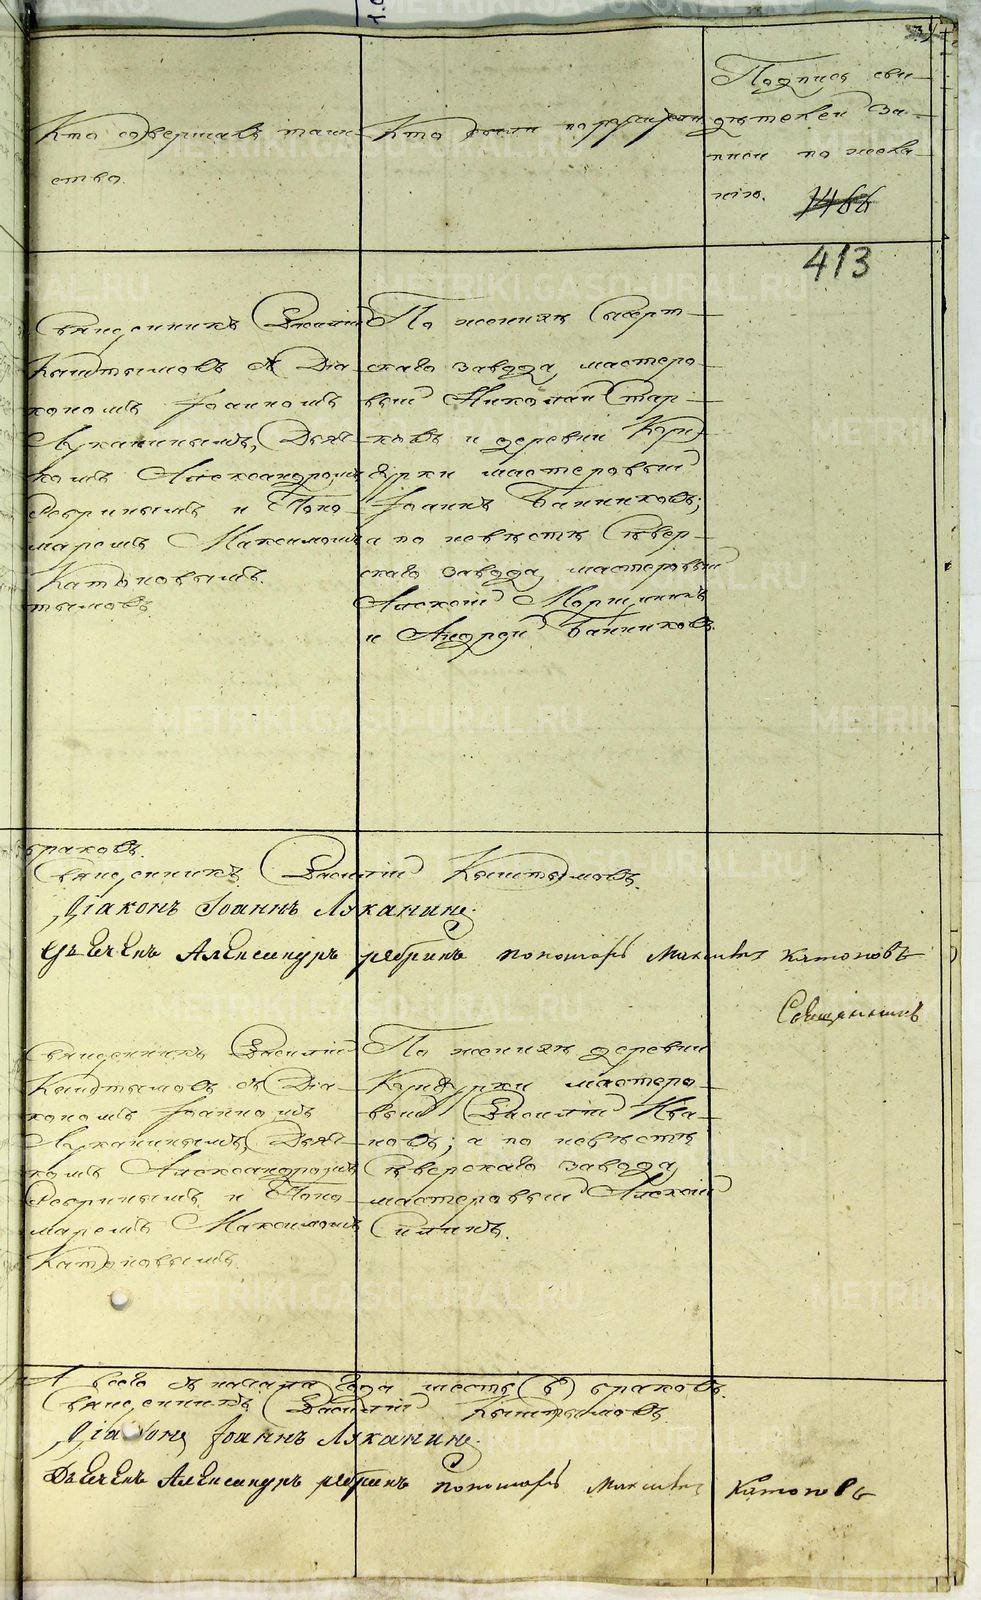 Кто совершалъ таин-
ство.
Кто были поручители
Подпись сви-
детелей за-
писи по жела-
нію.
1466
413
Священникъ Василій
Кыштымовъ съ Діа-
кономъ Іоанномъ
Луканинымъ, Дьяч-
комъ Александромъ
Ребринымъ и Поно-
маремъ Максимомъ
Катоновымъ.
По женихѣ Сысерт-
скаго завода мастеро-
вый Николай Стар-
ковъ и деревни
мастеровый
Іоаннъ Банниковъ;
а по невѣстѣ Сѣвер-
скаго завода мастеровый
Алексій
и Андрей Банниковъ.
браковъ.
Священникъ Василій Кыштымовъ.
Діаконъ Іоаннъ Луканинъ.
Дьячекъ Александръ Ребринъ пономарь Максимъ Катоновъ
Священникъ Василій
Кыштымовъ съ Діа-
кономъ Іоанномъ
Луканинымъ, Дьяч-
комъ Александромъ
Ребринымъ и Поно-
маремъ Максимомъ
Катоновымъ.
По женихѣ деревни
мастеро-
вый Василій Ива-
новъ; а по невѣстѣ
Сѣверскаго завода
мастеровый Алексій
А всего съ начала года шесть (6) браковъ.
Священникъ Василій Кыштымовъ.
Діаконъ Іоаннъ Луканинъ.
Дьячекъ Александръ Ребринъ пономарь Максимъ Катоновъ
METRIKI.GASO-URAL.RU